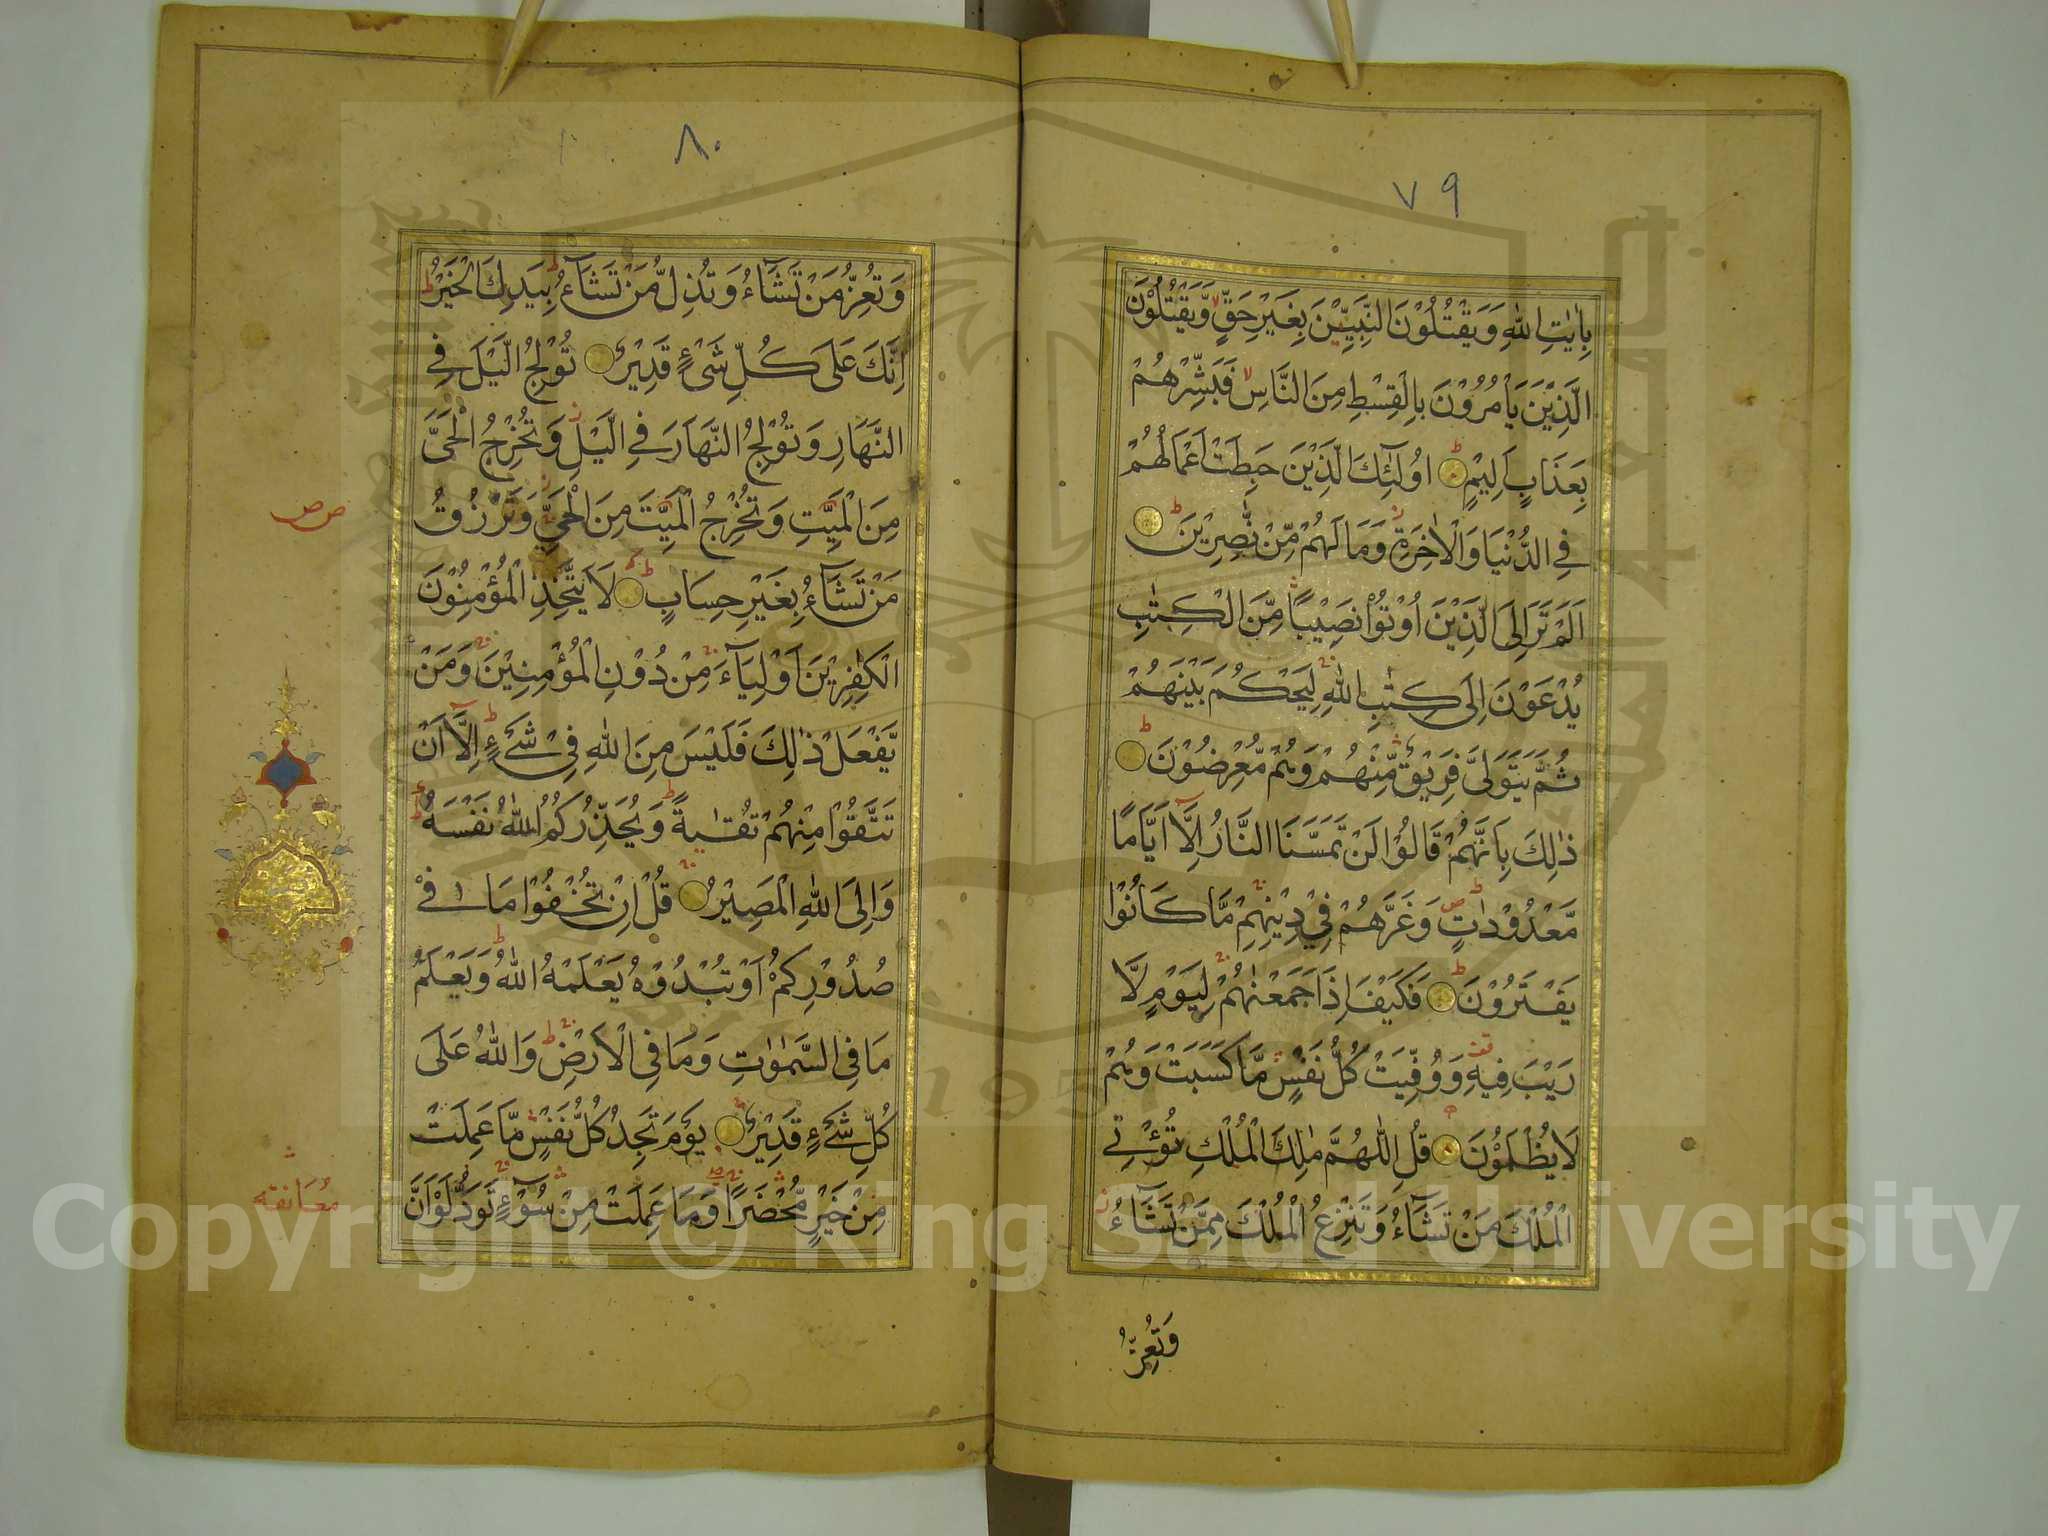 ٧٩
بِاٰيٰتِ اللهِ وَيَقْتُلُوْنَ النَّبِيّٖنَ بِغَيْرِ حَقٍّ وَّيَقْتُلُوْنَ
الَّذِيْنَ يَاْمُرُوْنَ بِالْقِسْطِ مِنَ النَّاسِ فَبَشِّرْهُمْ
بِعَذَابٍ اَلِيْمٍ اُولٰٓئِكَ الَّذِيْنَ حَبِطَتْ اَعْمَالُهُمْ
فِي الدُّنْيَا وَالْاٰخِرَةِ وَمَا لَهُمْ مِّنْ نّٰصِرِيْنَ
اَلَمْ تَرَ اِلَى الَّذِيْنَ اُوْتُوْا نَصِيْبًا مِّنَ الْكِتٰبِ
يُدْعَوْنَ اِلٰى كِتٰبِ اللهِ لِيَحْكُمَ بَيْنَهُمْ
ثُمَّ يَتَوَلّٰى فَرِيْقٌ مِّنْهُمْ وَهُمْ مُّعْرِضُوْنَ
ذٰلِكَ بِاَنَّهُمْ قَالُوْا لَنْ تَمَسَّنَا النَّارُ اِلَّآ اَيَّامًا
مَّعْدُوْدٰتٍ وَغَرَّهُمْ فِيْ دِيْنِهِمْ مَّا كَانُوْا
يَفْتَرُوْنَ فَكَيْفَ اِذَا جَمَعْنٰهُمْ لِيَوْمٍ لَّا
رَيْبَ فِيْهِ وَوُفِّيَتْ كُلُّ نَفْسٍ مَّا كَسَبَتْ وَهُمْ
لَا يُظْلَمُوْنَ قُلِ اللّٰهُمَّ مٰلِكَ الْمُلْكِ تُؤْتِي
الْمُلْكَ مَنْ تَشَآءُ وَتَنْزِعُ الْمُلْكَ مِمَّنْ تَشَآءُ
وَتُعِزُّ
٨٠
وَتُعِزُّ مَنْ تَشَآءُ وَتُذِلُّ مَنْ تَشَآءُ بِيَدِكَ الْخَيْرُ
اِنَّكَ عَلٰى كُلِّ شَيْءٍ قَدِيْرٌ تُوْلِجُ الَّيْلَ فِي
النَّهَارِ وَتُوْلِجُ النَّهَارَ فِي الَّيْلِ وَتُخْرِجُ الْحَيَّ
مِنَ الْمَيِّتِ وَتُخْرِجُ الْمَيِّتَ مِنَ الْحَيِّ وَتَرْزُقُ
مَنْ تَشَآءُ بِغَيْرِ حِسَابٍ لَا يَتَّخِذِ الْمُؤْمِنُوْنَ
الْكٰفِرِيْنَ اَوْلِيَآءَ مِنْ دُوْنِ الْمُؤْمِنِيْنَ وَمَنْ
يَّفْعَلْ ذٰلِكَ فَلَيْسَ مِنَ اللهِ فِيْ شَيْءٍ اِلَّآ اَنْ
تَتَّقُوْا مِنْهُمْ تُقٰىةً وَيُحَذِّرُكُمُ اللهُ نَفْسَهٗ
وَاِلَى اللهِ الْمَصِيْرُ قُلْ اِنْ تُخْفُوْا مَا فِيْ
صُدُوْرِكُمْ اَوْ تُبْدُوْهُ يَعْلَمْهُ اللهُ وَيَعْلَمُ
مَا فِي السَّمٰوٰتِ وَمَا فِي الْاَرْضِ وَاللهُ عَلٰى
كُلِّ شَيْءٍ قَدِيْرٌ يَوْمَ تَجِدُ كُلُّ نَفْسٍ مَّا عَمِلَتْ
مِنْ خَيْرٍ مُّحْضَرًا وَّمَا عَمِلَتْ مِنْ سُوْٓءٍ تَوَدُّ لَوْ اَنَّ
مُعَانقه
Copyright © King Saud University
1957